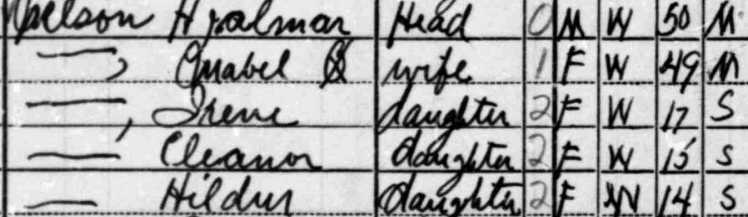 Nelson Hjalmar Head 0 M W 50 M
—, Anabel wife 1 F W 49 M
—, Irene daughter 2 F W 17 S
— Eleanor daughter 2 F W 15 S
— Hildur daughter 2 F W 14 S